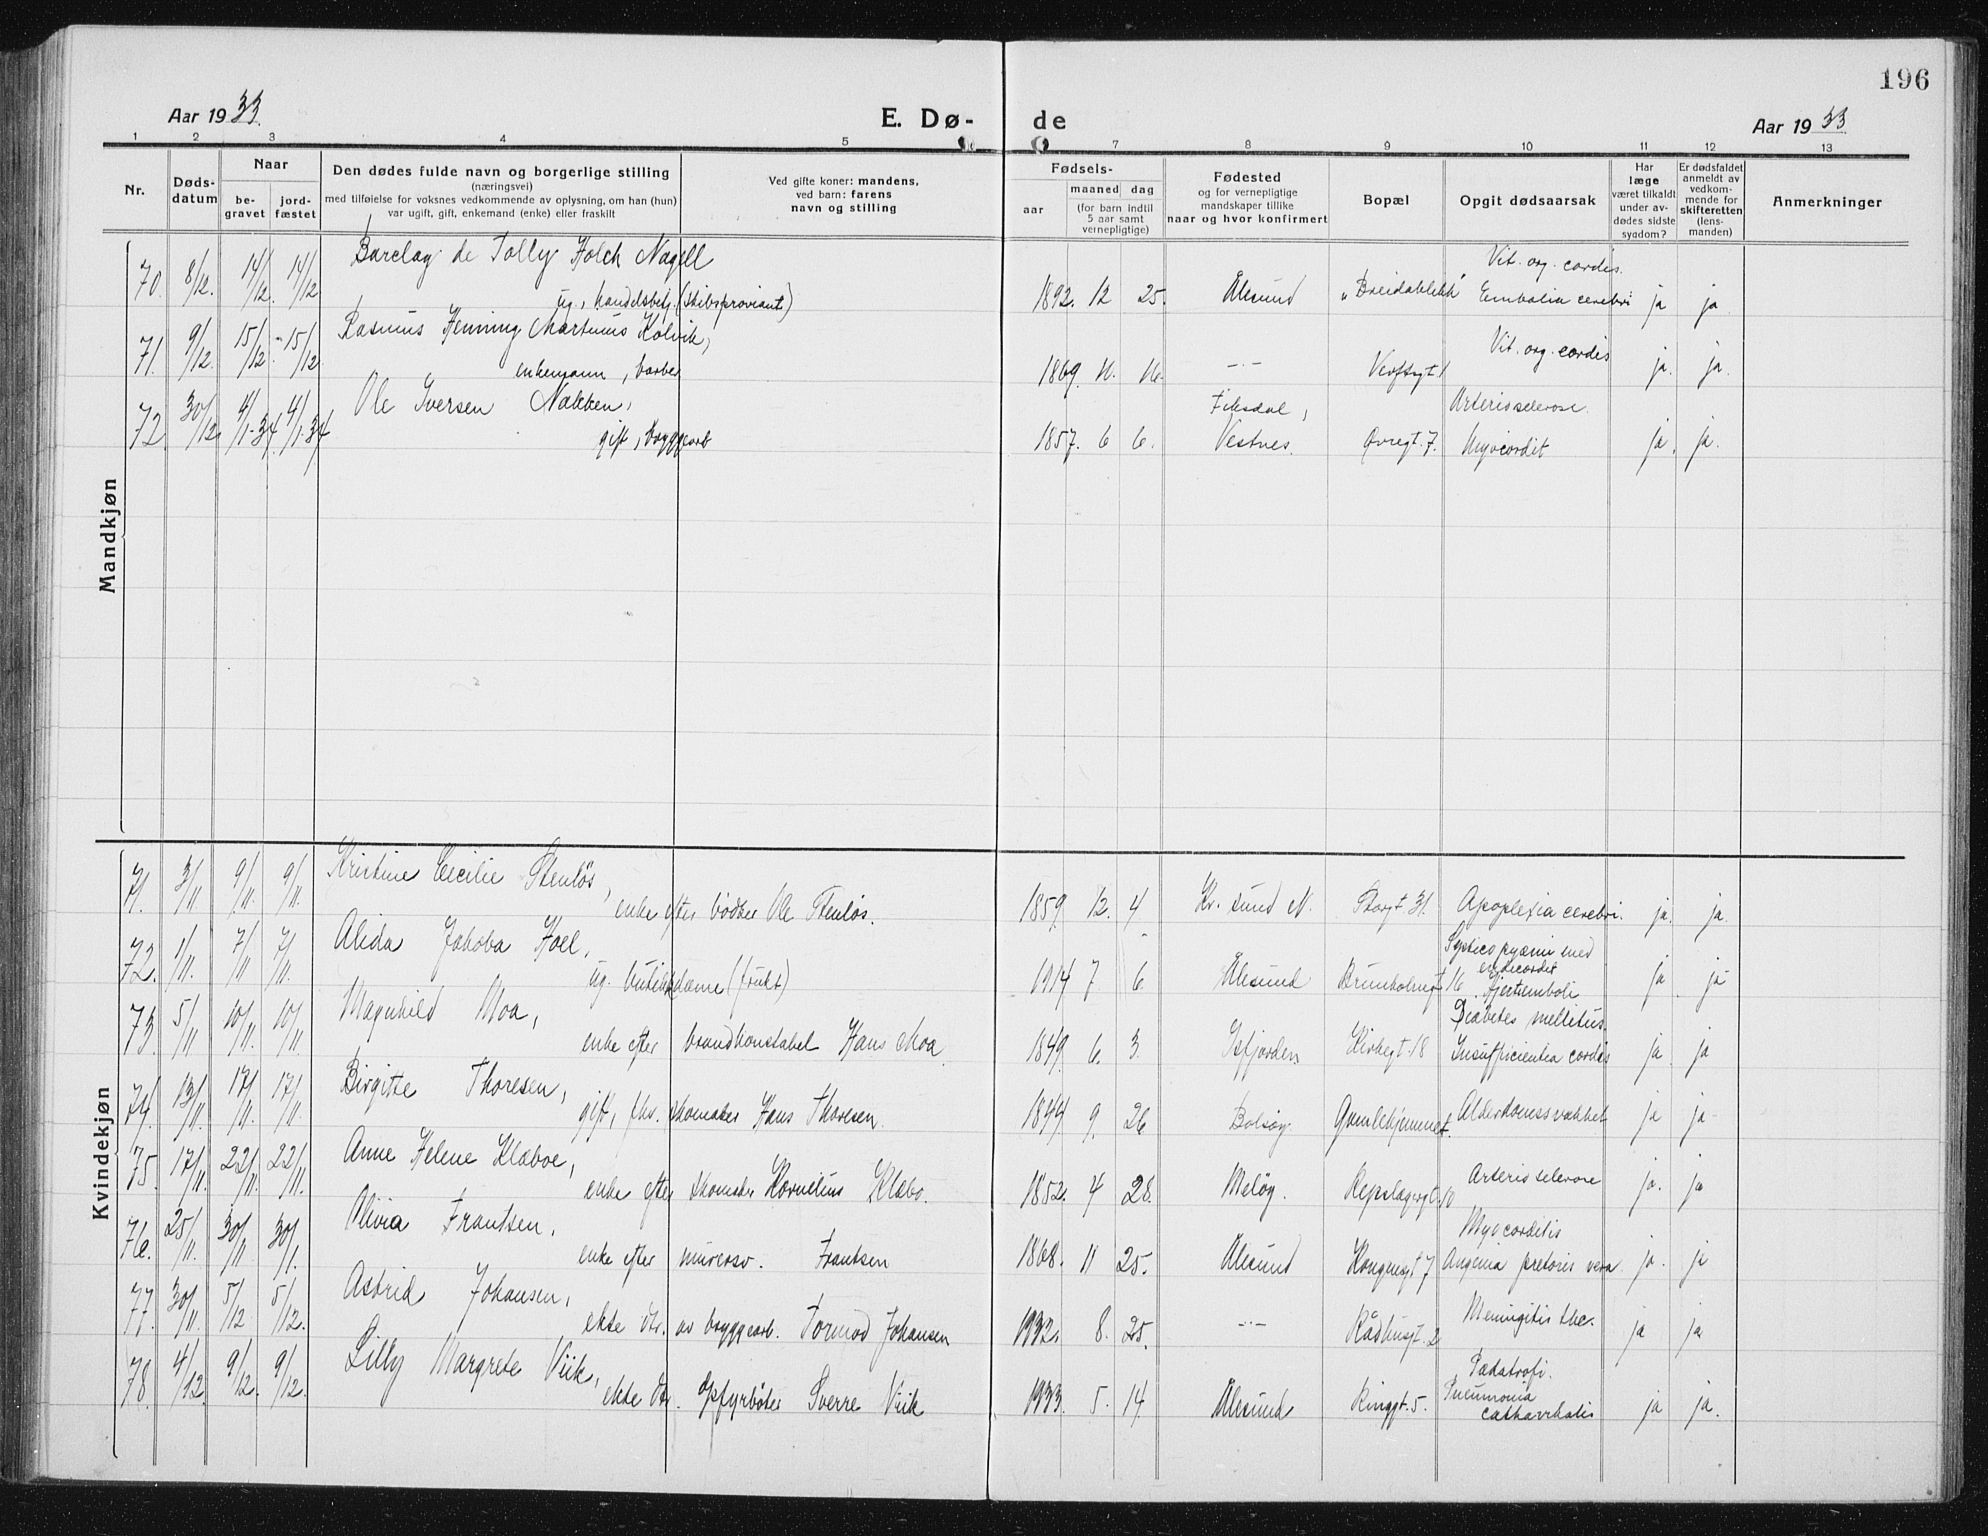 196
Aar 1933. E. Dø- de Aar 1933
1 2 3 4 5 7 8 9 10 11 12 13
Nr.
Døds-datum
Naar
be-gravet
jord-fæstet
Den dødes fulde navn og borgerlige stilling
(næringsvei)
med tilføielse for voksnes vedkommende av oplysning, om han (hun)
var ugift, gift, enkemand (enke) eller fraskilt
Ved gifte koner: mandens,
ved barn: farens
navn og stilling
Fødsels-
aar
maaned dag
(for barn indtil
5 aar samt
vernepligtige)
Fødested
og for vernepligtige
mandskaper tillike
naar og hvor konfirmert
Bopæl
Opgit dødsaarsak
Har
læge
været tilkaldt
under av-
dødes sidste
sygdom?
Er dødsfaldet
anmeldt av
vedkom-
mende for
skifteretten
(lens-
manden)
Anmerkninger
Mandkjøn
70. 8/12. 14/12. 14/12 Barclay de Tolly Holck Nagell
ug., handelsbetj. (skibsproviant) 1892. 12 25. Ålesund "Breidablikk" Vit. org. cordis.
Embolia cerebri ja ja
71. 9/12. 15/12. 15/12. Rasmus Henning Martinus Kolvik,
enkemann, barber 1869. 11. 16. -"- Verftsgt 1 Vit. org. cordis ja. ja.
72 30/12 4/1-34. 4/1-34 Ole Iversen Nakken,
gift, bryggearb 1857. 6 6. Fiksdal,
Vestnes. Øvregt. 7. Arteriosclerose.
Myocardit ja. ja.
Kvindekjøn
71. 3/11 9/11. 9/11. Kristine Cecilie Stenløs,
enke efter bødker Ole Stenløs. 1859. 12. 4 Kr.sund N. Storgt 31. Apoplexia cerebri. ja. ja.
72. 1/11. 7/11 7/11. Alida Jakoba Hoel,
ug. butikkdame (frukt) 1914 7 6 Ålesund Brunholmgt 16 Septico pyæmi med
endocardit
Hjertemboli ja ja
73. 5/11 10/11. 10/11. Magnhild Moa,
enke efter brandkonstabel Hans Moa 1849. 6. 3. Isfjorden Kirkegt. 18 Diabetes mellitus.
Insufficientia cordis ja ja
74. 13/11. 17/11. 17/11. Birgitte Thoresen,
gift, fhv. skomaker Hans Thoresen. 1844 9. 26 Bolsøy Gamlehjemmet. Alderdomssvakhet ja ja
75. 17/11. 22/11. 22/11. Anne Helene Klæboe,
enke efter skomaker Kornelius Klæbo. 1852. 4 28. Meløy. Repslagergt. 10 Arteriosclerose ja. ja
76. 25/11. 30/11 30/1. Olivia Frantsen,
enke efter murersv. Frantsen 1868. 11 25. Ålesund Kongensgt 7 Myocarditis
Angina pectoris vera ja. ja
77. 30/11. 5/12 5/12. Astrid Johansen,
ekte dtr. av bryggearb. Tormod Johansen 1932. 8. 25. -"- Rådhusgt. 2 Meningitis tbc. ja ja
78. 4/12 9/12. 9/12. Lilly Margrete Viik,
ekte dtr. opfyrbøter Sverre Viik 1933. 5. 14. Ålesund Ringgt. 5. Pædatrofi.
Pneumonia
catharrhalis ja ja.